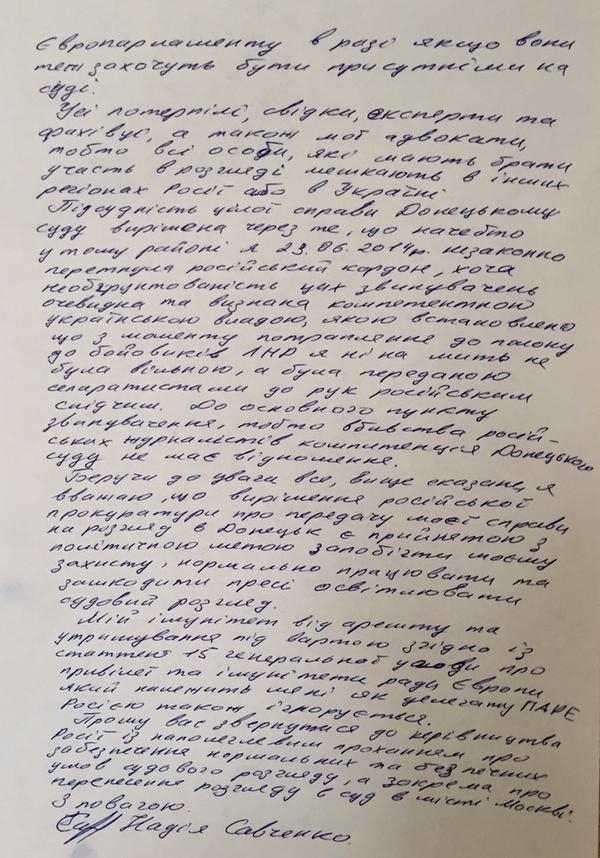 Європарламенту в разі якщо вони
теж захочуть бути присутніми на
суді.
Усі потерпілі, свідки, експерти та
фахівці, а також мої адвокати,
тобто всі особи, які мають брати
участь в розгляді мешкають в інших
регіонах Росії або в Україні
Підсудність цілої справи Донецькому
суду вирішена через те, що начебто
у тому районі я 23.06.2014р. незаконно
перетнула російський кордон, хоча
необґрунтованість цих звинувачень
очевидна та визнана компетентною
українською владою, якою встановлено
що з моменту потрапляння до полону
до бойовиків ЛНР я ні на мить не
була вільною, а була переданою
сепаратистами до рук російським
слідчим. До основного пункту
звинувачення, тобто вбивства росій-
ських журналістів компитенція Донецького
суду не має відношення.
Беручи до уваги все, вище сказане, я
вважаю, що вирішення російської
прокуратури про передачу моєї справи
на розгляд в Донецьк є прийнятою з
політичною метою запобігти моєму
захисту, нормально працювати та
зашкодити пресі освітлювати
судовий розгляд.
Мій імунітет від арешту та
утримування під вартою згідно із
статтею 15 генеральної угоди про
привілеї та імунітети ради Європи
який належить мені як делегату ПАРЕ
Росією також ігнорується.
Прошу вас звернутися до керівництва
Росії із наполегливим проханням про
забезпечення нормальних та безпечних
умов судового розгляду, а зокрема про
перенесення розгляду в суд в місті Москві.
З повагою.
Надія Савченко.